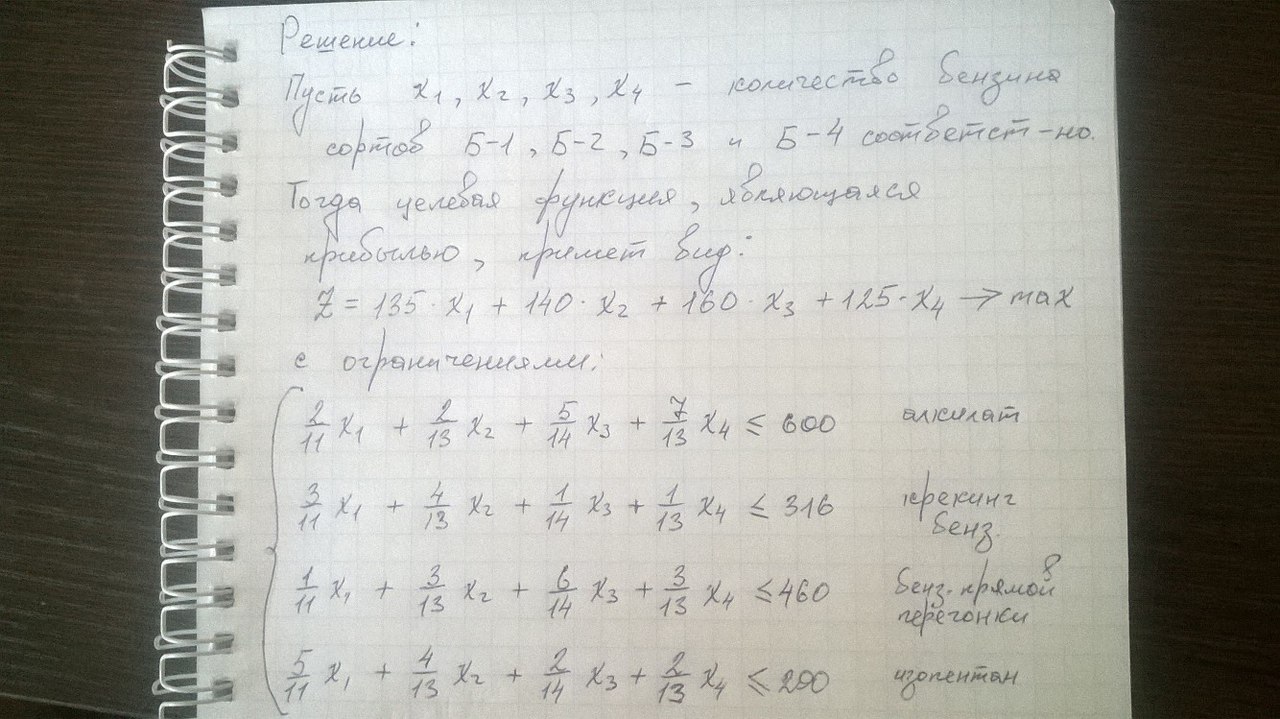 Решение:
Пусть x1, x2, x3, x4 – количество бензина
сортов Б-1, Б-2, Б-3 и Б-4 соответст-но.
Тогда целевая функция, являющаяся
прибылью, примет вид:
Z = 135·x1 + 140·x2 + 160·x3 + 125·x4 → max
с ограничениями:
2/11 x1 + 2/13 x2 + 5/14 x3 + 7/13 x4 ≤ 600 алкилат
3/11 x1 + 4/13 x2 + 1/14 x3 + 1/13 x4 ≤ 316 крекинг
бенз.
1/11 x1 + 3/13 x2 + 6/14 x3 + 3/13 x4 ≤ 460 бенз. прямой
перегонки
5/11 x1 + 4/13 x2 + 2/14 x3 + 2/13 x4 ≤ 200 изопентан